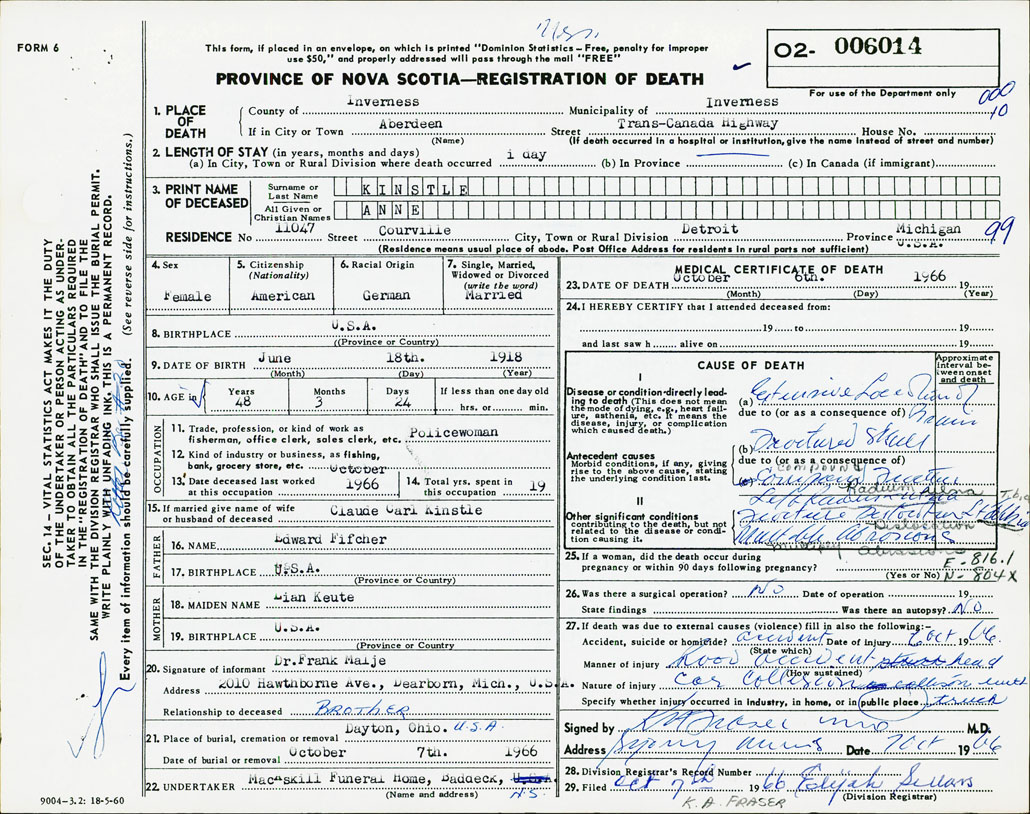 FORM 6
This form, if placed in an envelope, on which is printed "Dominion Statistics – Free, penalty for improper
use $50," and properly addressed will pass through the mail "FREE"
PROVINCE OF NOVA SCOTIA—REGISTRATION OF DEATH
O2- 006014
For use of the Department only
000
10
1. PLACE OF DEATH
County of Inverness Municipality of Inverness
If in City or Town Aberdeen Street Trans-Canada Highway House No.
(Name) (If death occurred in a hospital or institution, give the name instead of street and number)
2. LENGTH OF STAY (in years, months and days)
(a) In City, Town or Rural Division where death occurred 1 day (b) In Province (c) In Canada (if immigrant)
3. PRINT NAME OF DECEASED
Surname or Last Name KINSTLE
All Given or Christian Names ANNE
RESIDENCE No 11047 Street Courville City, Town or Rural Division Detroit Province Michigan
U.S.A.
99
(Residence means usual place of abode. Post Office Address for residents in rural parts not sufficient)
4. Sex
Female
5. Citizenship
(Nationality)
American
6. Racial Origin
German
7. Single, Married,
Widowed or Divorced
(write the word)
Married
8. BIRTHPLACE U.S.A.
((Province or Country)
9. DATE OF BIRTH June 18th. 1918
(Month) (Day) (Year)
10. AGE in Years Months Days If less than one day old
48 3 24 hrs. or min.
OCCUPATION
11. Trade, profession, or kind of work as
fisherman, office clerk, sales clerk, etc. Policewoman
12. Kind of industry or business, as fishing,
bank, grocery store, etc.
13. Date deceased last worked
at this occupation October 1966
14. Total yrs. spent in
this occupation 19
15. If married give name of wife
or husband of deceased Claude Carl Kinstle
FATHER
16. NAME Edward Fifcher
17. BIRTHPLACE U.S.A.
(Province or Country)
MOTHER
18. MAIDEN NAME Lian Keute
19. BIRTHPLACE U.S.A.
(Province or Country)
20. Signature of informant Dr.Frank Malje
Address 2010 Hawthborne Ave., Dearborn, Mich., U.S.A.
Relationship to deceased BROTHER
21. Place of burial, cremation or removal Dayton, Ohio. U.S.A.
Date of burial or removal October 7th. 1966
22. UNDERTAKER MacAskill Funeral Home, Baddeck, U.S.A.
N.S.
(Name and address)
MEDICAL CERTIFICATE OF DEATH
23. DATE OF DEATH October 6th. 1966
(Month) (Day) (Year)
24. I HEREBY CERTIFY that I attended deceased from:
19 to 19
and last saw h alive on 19
CAUSE OF DEATH
Approximate
interval between onset
and death
I
Disease or condition directly leading to death (This does not mean
the mode of dying, e.g., heart failure, asthenia, etc. It means the
disease, injury, or complication
which caused death.)
(a) Extensive Laceration of
Brain
due to (or as a consequence of)
(b) Fractured Skull
Antecedent causes
Morbid conditions, if any, giving
rise to the above cause, stating
the underlying condition last.
due to (or as a consequence of)
COMPOUND
(c) Compound Fracture
Radius
Left
II
Other significant conditions
contributing to the death, but not
related to the disease or condition causing it.
Fracture
Dislocation
Multiple abrasions
Multiple abrasions
25. If a woman, did the death occur during
pregnancy or within 90 days following pregnancy? (Yes or No)
E-816.1
N-804X
26. Was there a surgical operation? NO Date of operation 19
State findings Was there an autopsy? NO
27. If death was due to external causes (violence) fill in also the following:-
Accident, suicide or homicide? accident Date of injury 6 Oct 1966
(State which)
Manner of injury Road accident head
(How sustained)
Nature of injury car collision collision with
Specify whether injury occurred in industry, in home, or in (public place) truck
Signed by K A Fraser M.D.
Address Sydney Mines Date 7 Oct 1966
28. Division Registrar's Record Number
29. Filed Oct 7th 1966 Elijah
(Division Registrar)
K. A. FRASER
9004–3.2: 18-5-60
SEC. 14 – VITAL STATISTICS ACT MAKES IT THE DUTY
OF THE UNDERTAKER OR PERSON ACTING AS UNDERTAKER TO OBTAIN ALL THE PARTICULARS REQUIRED
IN THE "REGISTRATION OF DEATH" AND TO FILE THE
SAME WITH THE DIVISION REGISTRAR WHO SHALL ISSUE THE BURIAL PERMIT.
WRITE PLAINLY WITH UNFADING INK. THIS IS A PERMANENT RECORD.
Every item of information should be carefully supplied. (See reverse side for instructions.)